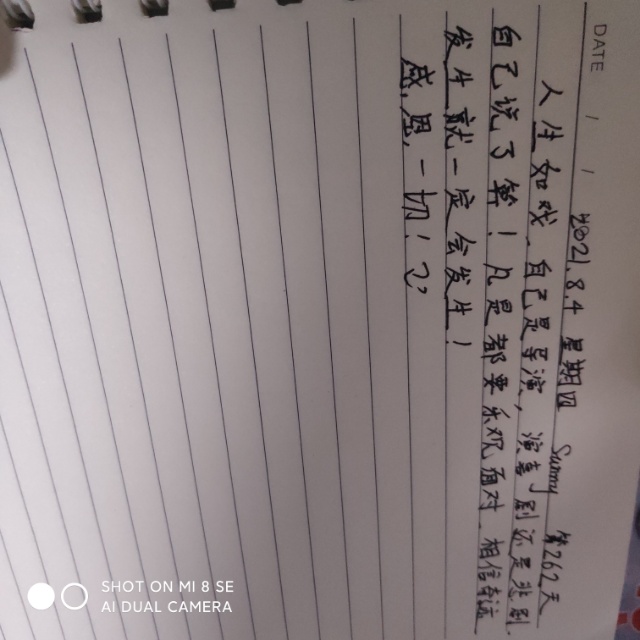 DATE / /
2021.8.4 星期四 Sunny 第262天
人生如戏，自己是导演，演喜剧还是悲剧
自己说了算！凡是都要乐观面对，相信奇迹
发生就一定会发生！
感恩一切！
SHOT ON MI 8 SE
AI DUAL CAMERA